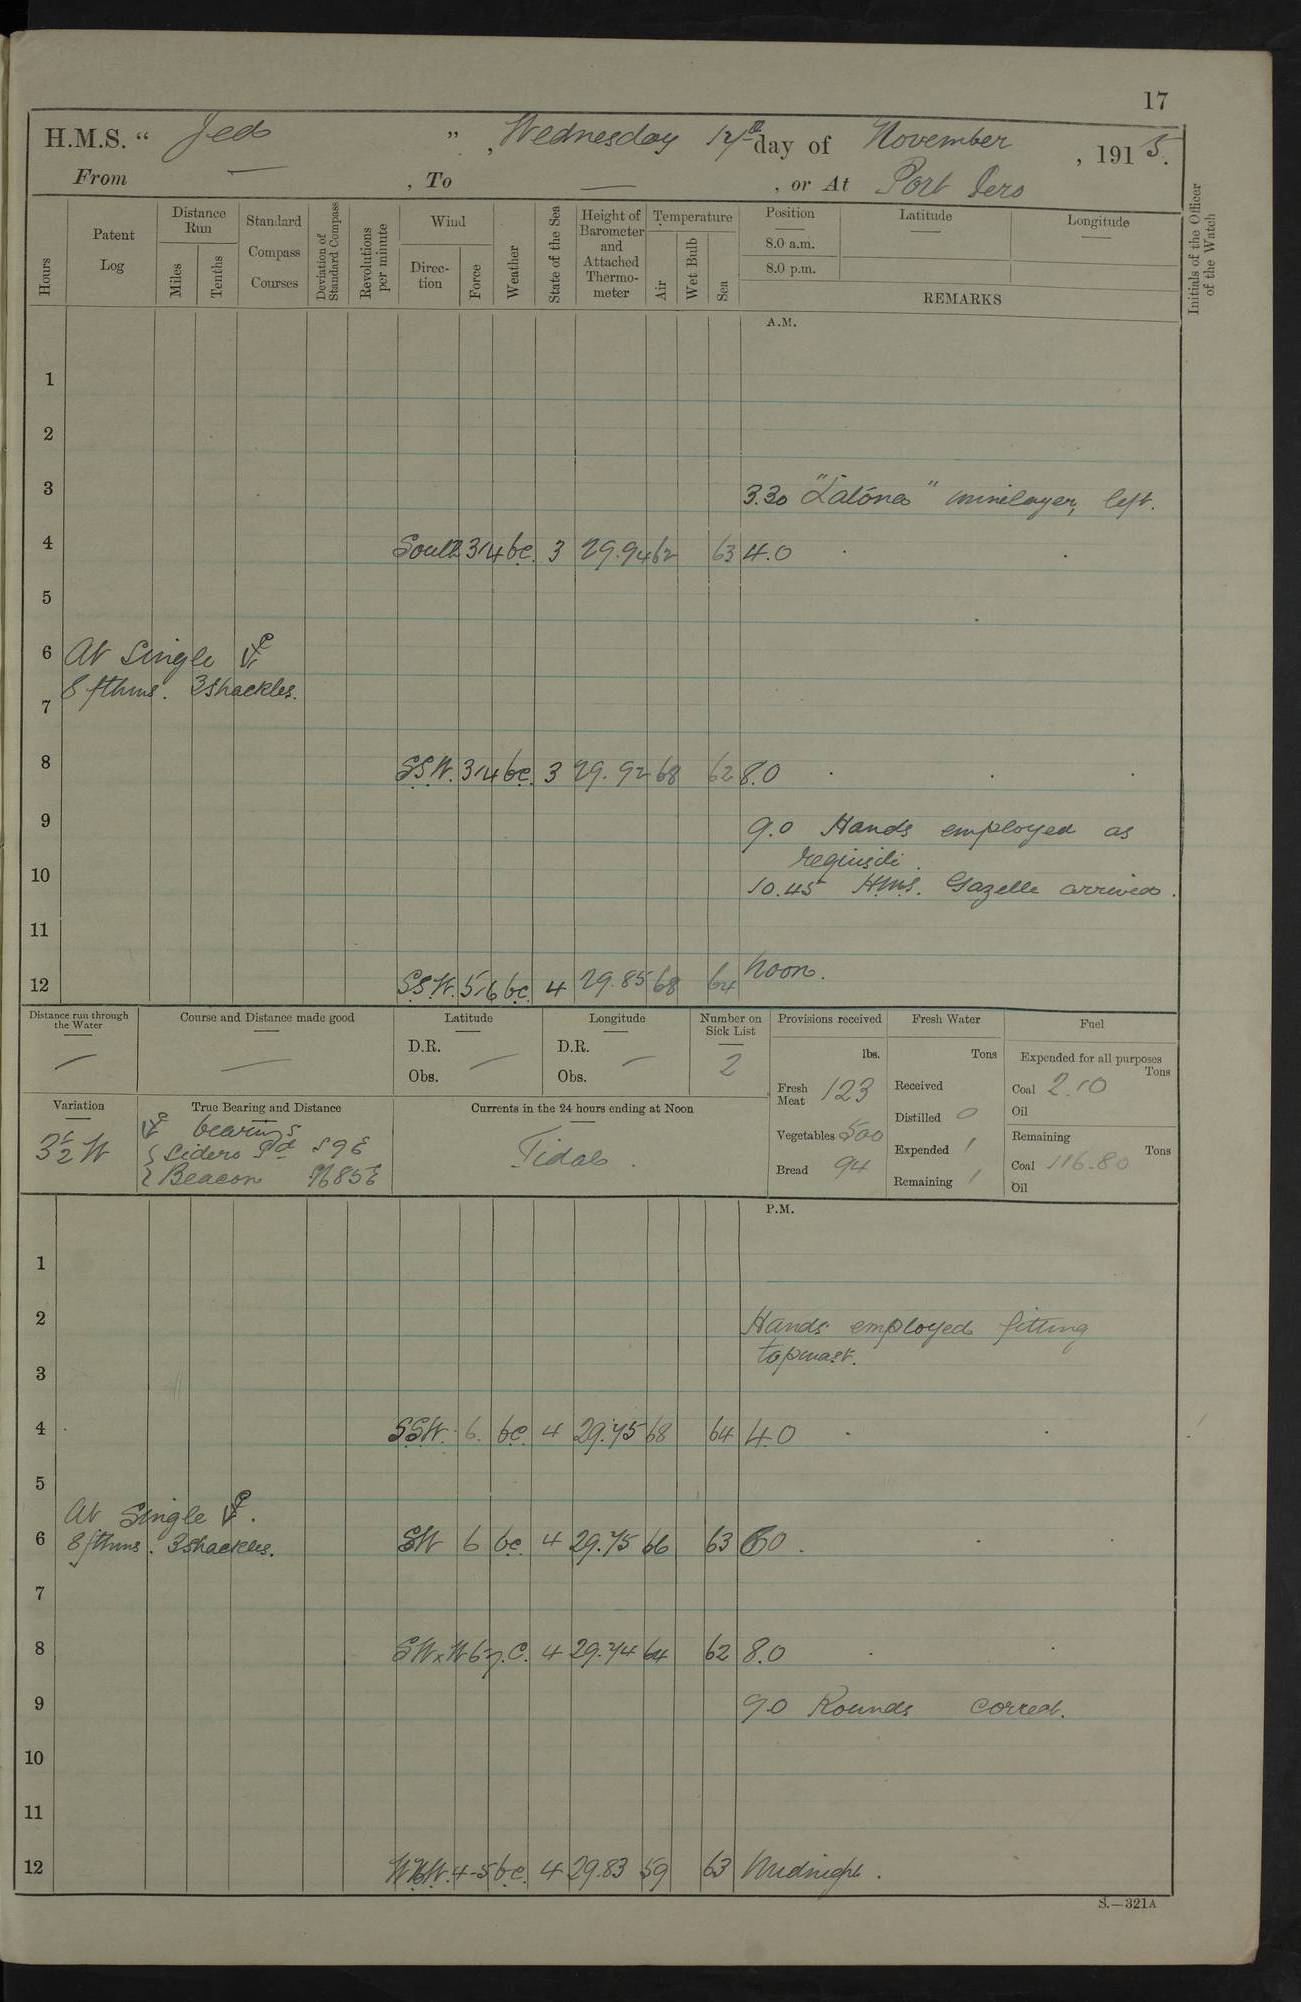 17
H.M.S. “ Jed ” , Wednesday 17th day of November , 1915.
From — , To — , or At Port Iero
Hours
Patent Log
Distance Run
Miles
Tenths
Standard Compass Courses
Deviation of Standard Compass
Revolutions per minute
Wind
Direction
Force
Weather
State of the Sea
Height of Barometer and Attached Thermometer
Temperature
Air
Wet Bulb
Sea
Position
8.0 a.m.
8.0 p.m.
Latitude
Longitude
REMARKS
Initials of the Officer of the Watch
A.M.
1
2
3 3.30 "Latona" minelayer, left.
4 South 3/4 bc. 3 29.94 62 63 4.0
5
6 At Single
8 fthms. 3 shackles.
7
8 SSW. 3/4 bc. 3 29.92 68 62 8.0
9 9.0 Hands employed as
requisite.
10 10.45 H.M.S. Gazelle arrived.
11
12 SSW. 5-6 bc. 4 29.85 68 64 Noon.
Distance run through the Water
—
Course and Distance made good
—
Latitude
D.R. —
Obs.
Longitude
D.R. —
Obs.
Number on Sick List
2
Provisions received
lbs.
Fresh Meat 123
Vegetables 500
Bread 94
Fresh Water
Tons
Received
Distilled 0
Expended
Remaining
Fuel
Expended for all purposes
Tons
Coal 2.10
Oil
Remaining
Tons
Coal 116.80
Oil
Variation
3½ W
True Bearing and Distance
bearings
Sidero Pd S 9 E
Beacon N 85 E
Currents in the 24 hours ending at Noon
Tidal.
P.M.
1
2 Hands employed fitting
topmast.
3
4 SSW. 6. bc. 4 29.75 68 64 4.0
5
At Single
6 8 fthms. 3 shackles. SW 6 bc. 4 29.75 66 63 6.0
7
8 SW x W 6-7. c. 4 29.74 64 62 8.0
9 9.0 Rounds correct.
10
11
12 4-5 bc. 4 29.83 59 63 Midnight.
S.—321A